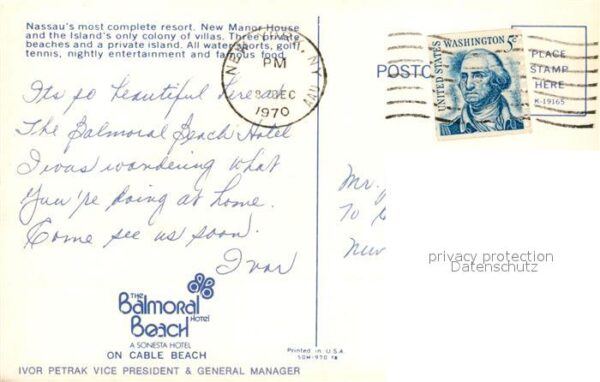 Nassau's most complete resort. New Manor House
and the Island's only colony of villas. Three private
beaches and a private island. All water sports, golf,
tennis, nightly entertainment and famous food.
N.Y.
PM
DEC
1970
UNITED STATES
WASHINGTON 5¢
POSTC
PLACE
STAMP
HERE
K-19165
Its so beautiful here at
The Balmoral Beach Hotel
I was wandering what
You're doing at home.
Come see us soon.
Ivor
Mr.
To
New
privacy protection
Datenschutz
THE
Balmoral
Beach HOTEL
A SONESTA HOTEL
ON CABLE BEACH
Printed in U.S.A.
IVOR PETRAK VICE PRESIDENT & GENERAL MANAGER